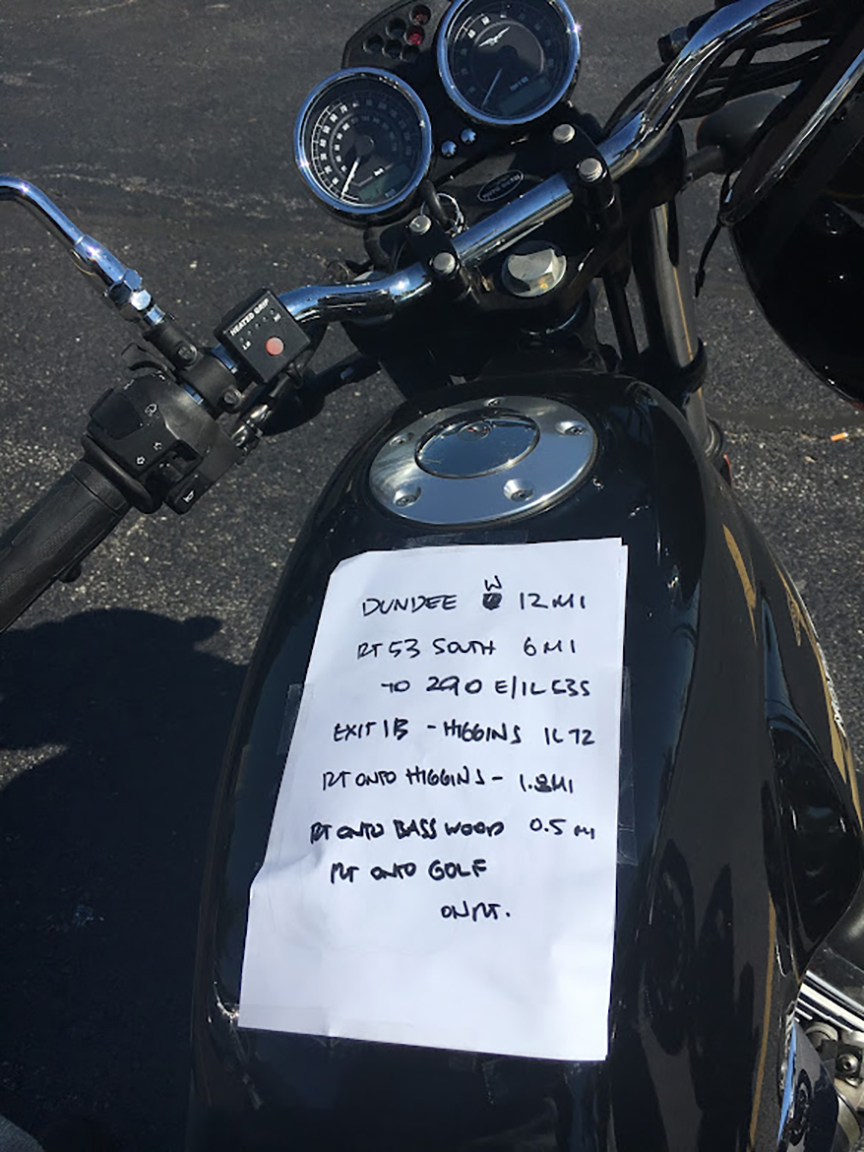 HEATED GRIP
LO HI
DUNDEE W 12 MI
RT 53 SOUTH 6 MI
TO 290 E/IL 53S
EXIT 1B - HIGGINS IL 72
RT ONTO HIGGINS - 1.8 MI
RT ONTO BASSWOOD 0.5 MI
RT ONTO GOLF
ON RT.